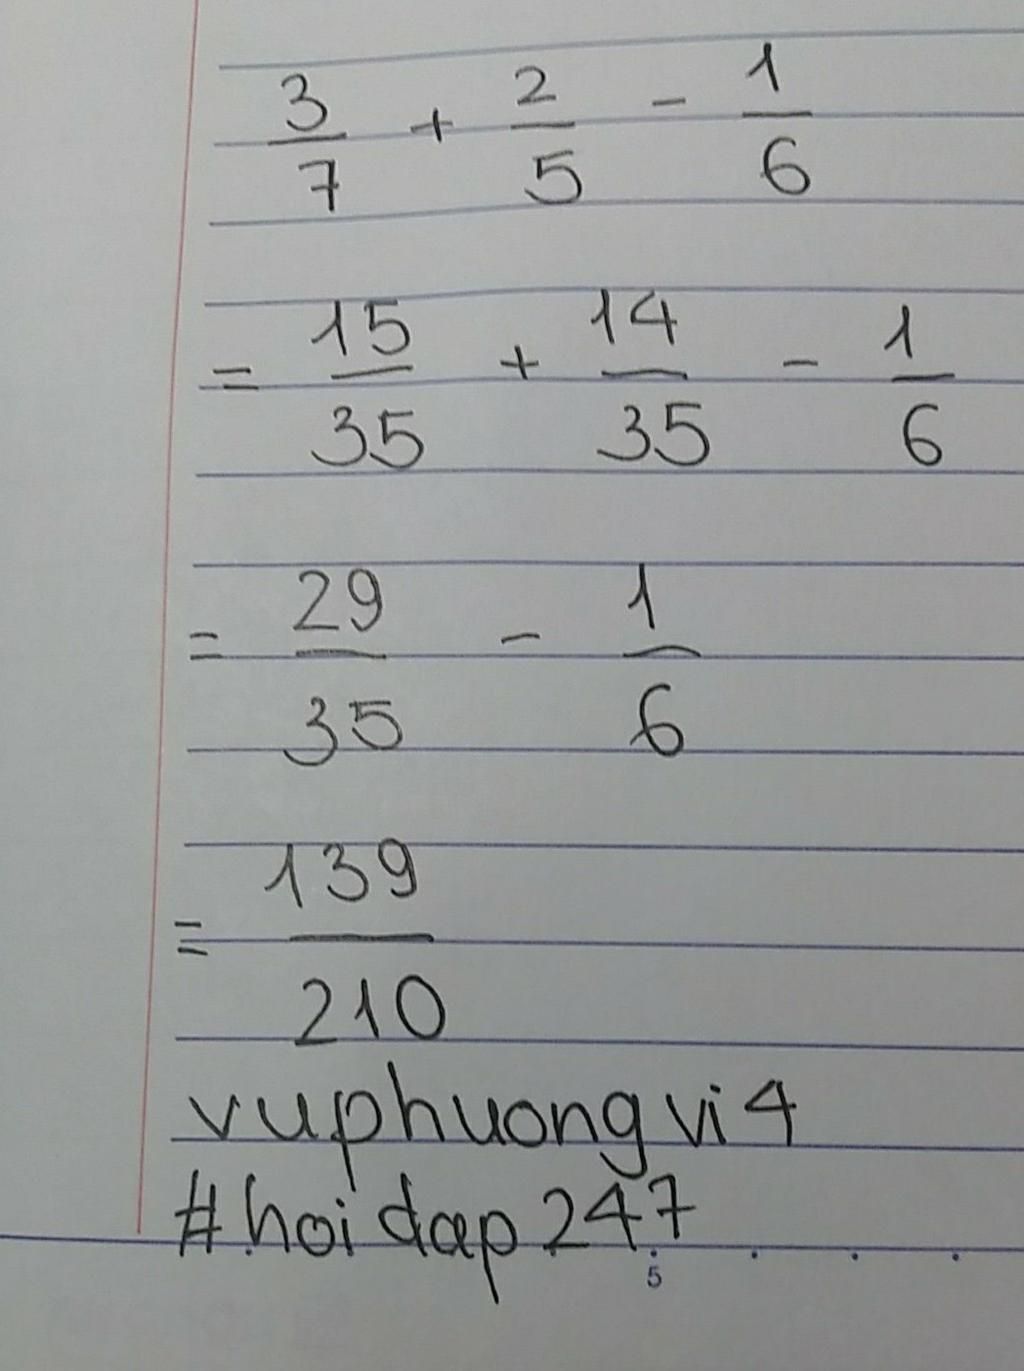 3/7 + 2/5 - 1/6
= 15/35 + 14/35 - 1/6
= 29/35 - 1/6
= 139/210
vuphuongvi4
#hoidap247
5